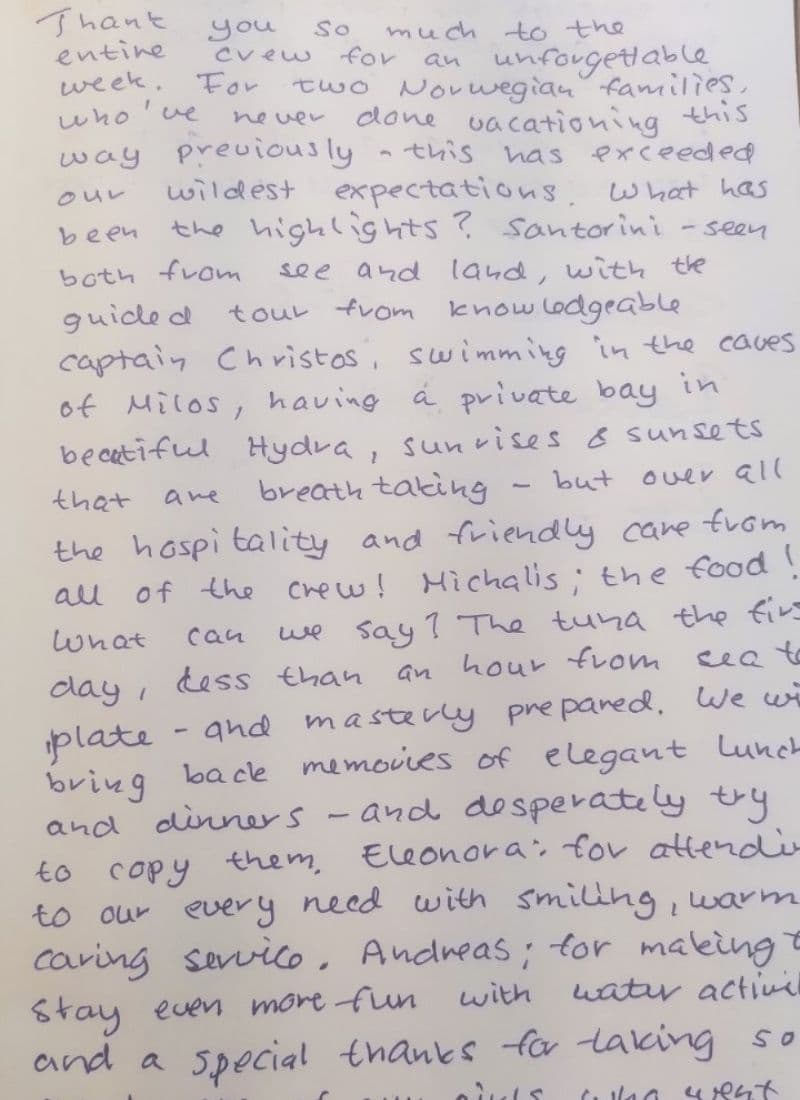 Thank you so much to the
entire crew for an unforgettable
week. For two Norwegian families,
who've never done vacationing this
way previously - this has exceeded
our wildest expectations. What has
been the highlights? Santorini - seen
both from see and land, with the
guided tour from knowledgeable
captain Christos, swimming in the caves
of Milos, having a private bay in
beautiful Hydra, sunrises & sunsets
that are breathtaking - but over all
the hospitality and friendly care from
all of the crew! Michalis; the food!
What can we say? The tuna the firs
day, less than an hour from sea to
plate - and masterly prepared. We wi
bring back memories of elegant lunch
and dinners - and desperately try
to copy them. Eleonora: for attendin
to our every need with smiling, warm
caring service. Andreas; for making t
stay even more fun with water activi
and a special thanks for taking so
of our girls who went